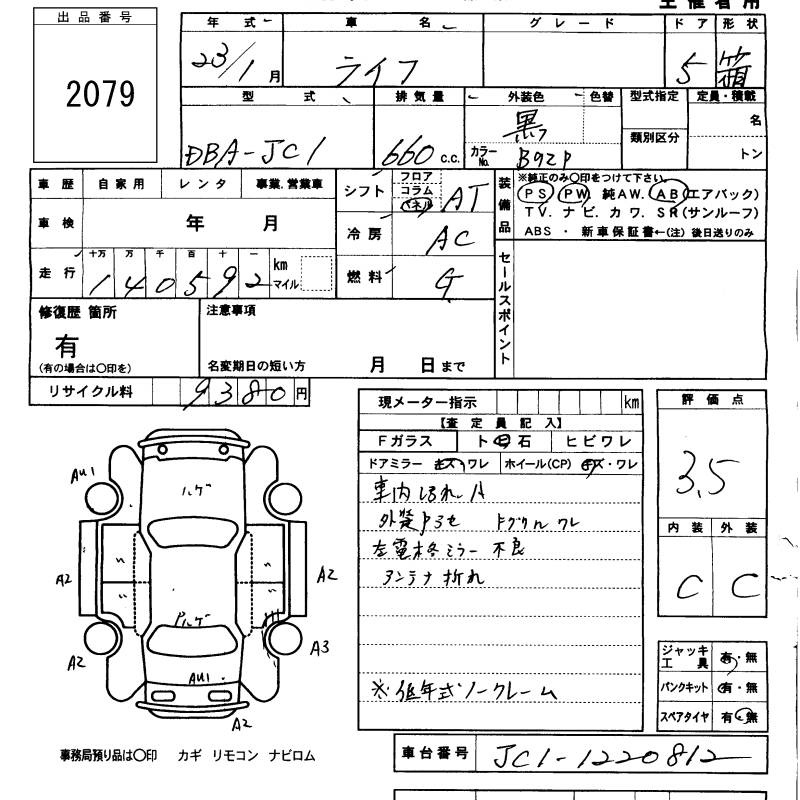 主催者用
出品番号
2079
年式 車名 グレード ドア 形状
23/1月 ライフ 5 箱
型式 排気量 外装色 色替 型式指定 定員・積載
DBA-JC1 660 c.c. 黒 類別区分 名
カラーNo. B92P トン
車歴 自家用 レンタ 事業.営業車
シフト フロア コラム パネル AT
装備品 ※純正のみ〇印をつけて下さい。
PS PW 純AW. AB(エアバック)
TV. ナビ. カワ. SR(サンルーフ)
ABS ・ 新車保証書←(注) 後日送りのみ
車検 年 月
冷房 AC
走行 十万 万 千 百 十 一 km マイル
140592
燃料 G
セールスポイント
修復歴 箇所 注意事項
有
(有の場合は〇印を) 名変期日の短い方 月 日まで
リサイクル料 9380円
現メーター指示 km
【査定員記入】
Fガラス ト 石 ヒビワレ
ドアミラー キズ ワレ ホイール(CP) キズ・ワレ
車内 A
外装
左電格ミラー 不良
アンテナ 折れ
※低年式ノークレーム
評価点
3.5
内装 外装
C C
ジャッキ工具 有・無
パンクキット 有・無
スペアタイヤ 有・無
AU1
ハゲ
A2 A2
ハゲ
A2 A3
AU1
A2
事務局預り品は〇印 カギ リモコン ナビロム
車台番号 JC1-1220812